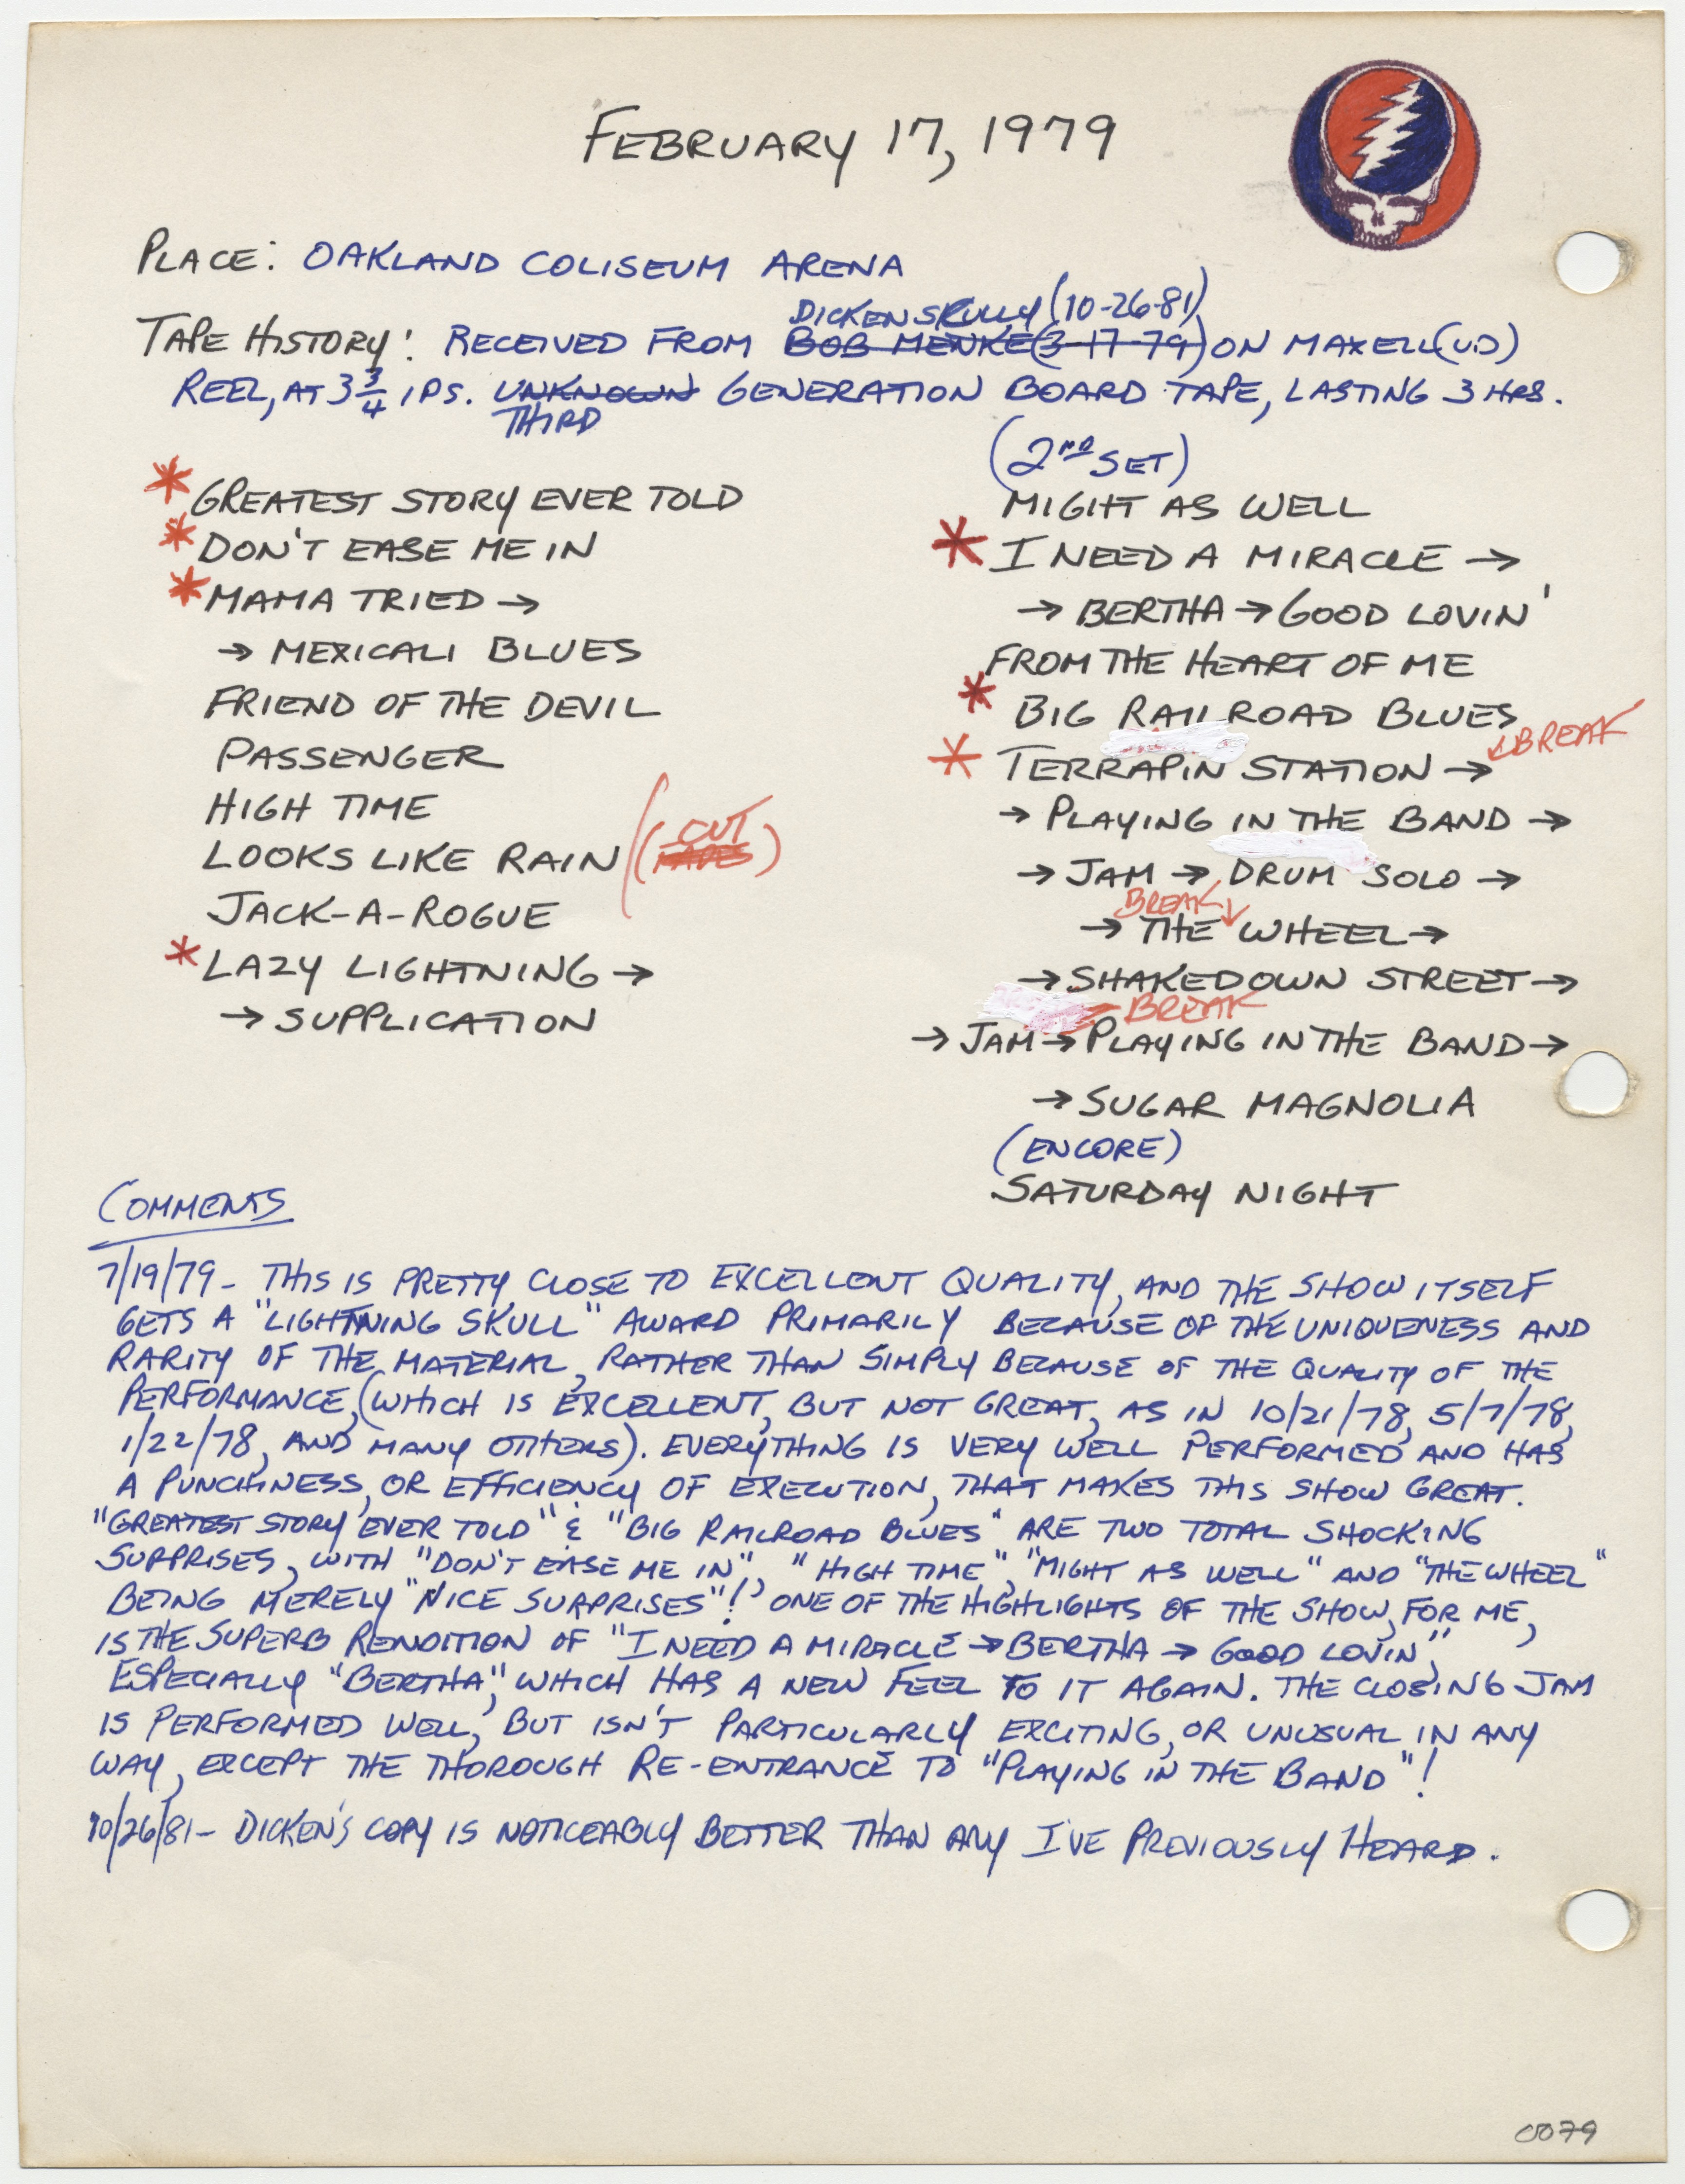 FEBRUARY 17, 1979
PLACE: OAKLAND COLISEUM ARENA
DICKEN SKULLY (10-26-81)
TAPE HISTORY: RECEIVED FROM BOB MENKE (3-17-79) ON MAXELL (UD)
REEL, AT 3 3/4 IPS. UNKNOWN GENERATION BOARD TAPE, LASTING 3 HRS.
THIRD
* GREATEST STORY EVER TOLD
* DON'T EASE ME IN
* MAMA TRIED →
→ MEXICALI BLUES
FRIEND OF THE DEVIL
PASSENGER
HIGH TIME
LOOKS LIKE RAIN (CUT)
JACK-A-ROGUE
* LAZY LIGHTNING →
→ SUPPLICATION
(2ND SET)
MIGHT AS WELL
* I NEED A MIRACLE →
→ BERTHA → GOOD LOVIN'
FROM THE HEART OF ME
* BIG RAILROAD BLUES
* TERRAPIN STATION → BREAK
→ PLAYING IN THE BAND →
→ JAM → DRUM SOLO →
BREAK
→ THE WHEEL →
→ SHAKEDOWN STREET →
BREAK
→ JAM → PLAYING IN THE BAND →
→ SUGAR MAGNOLIA
(ENCORE)
SATURDAY NIGHT
COMMENTS
7/19/79 - THIS IS PRETTY CLOSE TO EXCELLENT QUALITY, AND THE SHOW ITSELF
GETS A "LIGHTNING SKULL" AWARD PRIMARILY BECAUSE OF THE UNIQUENESS AND
RARITY OF THE MATERIAL, RATHER THAN SIMPLY BECAUSE OF THE QUALITY OF THE
PERFORMANCE, (WHICH IS EXCELLENT, BUT NOT GREAT, AS IN 10/21/78, 5/7/78,
1/22/78, AND MANY OTHERS). EVERYTHING IS VERY WELL PERFORMED AND HAS
A PUNCHINESS, OR EFFICIENCY OF EXECUTION, THAT MAKES THIS SHOW GREAT.
"GREATEST STORY EVER TOLD" & "BIG RAILROAD BLUES" ARE TWO TOTAL SHOCKING
SURPRISES, WITH "DON'T EASE ME IN", "HIGH TIME", "MIGHT AS WELL" AND "THE WHEEL"
BEING MERELY "NICE SURPRISES"! ONE OF THE HIGHLIGHTS OF THE SHOW, FOR ME,
IS THE SUPERB RENDITION OF "I NEED A MIRACLE → BERTHA → GOOD LOVIN",
ESPECIALLY "BERTHA", WHICH HAS A NEW FEEL TO IT AGAIN. THE CLOSING JAM
IS PERFORMED WELL, BUT ISN'T PARTICULARLY EXCITING, OR UNUSUAL IN ANY
WAY, EXCEPT THE THOROUGH RE-ENTRANCE TO "PLAYING IN THE BAND"!
10/26/81 - DICKEN'S COPY IS NOTICEABLY BETTER THAN ANY I'VE PREVIOUSLY HEARD.
0079